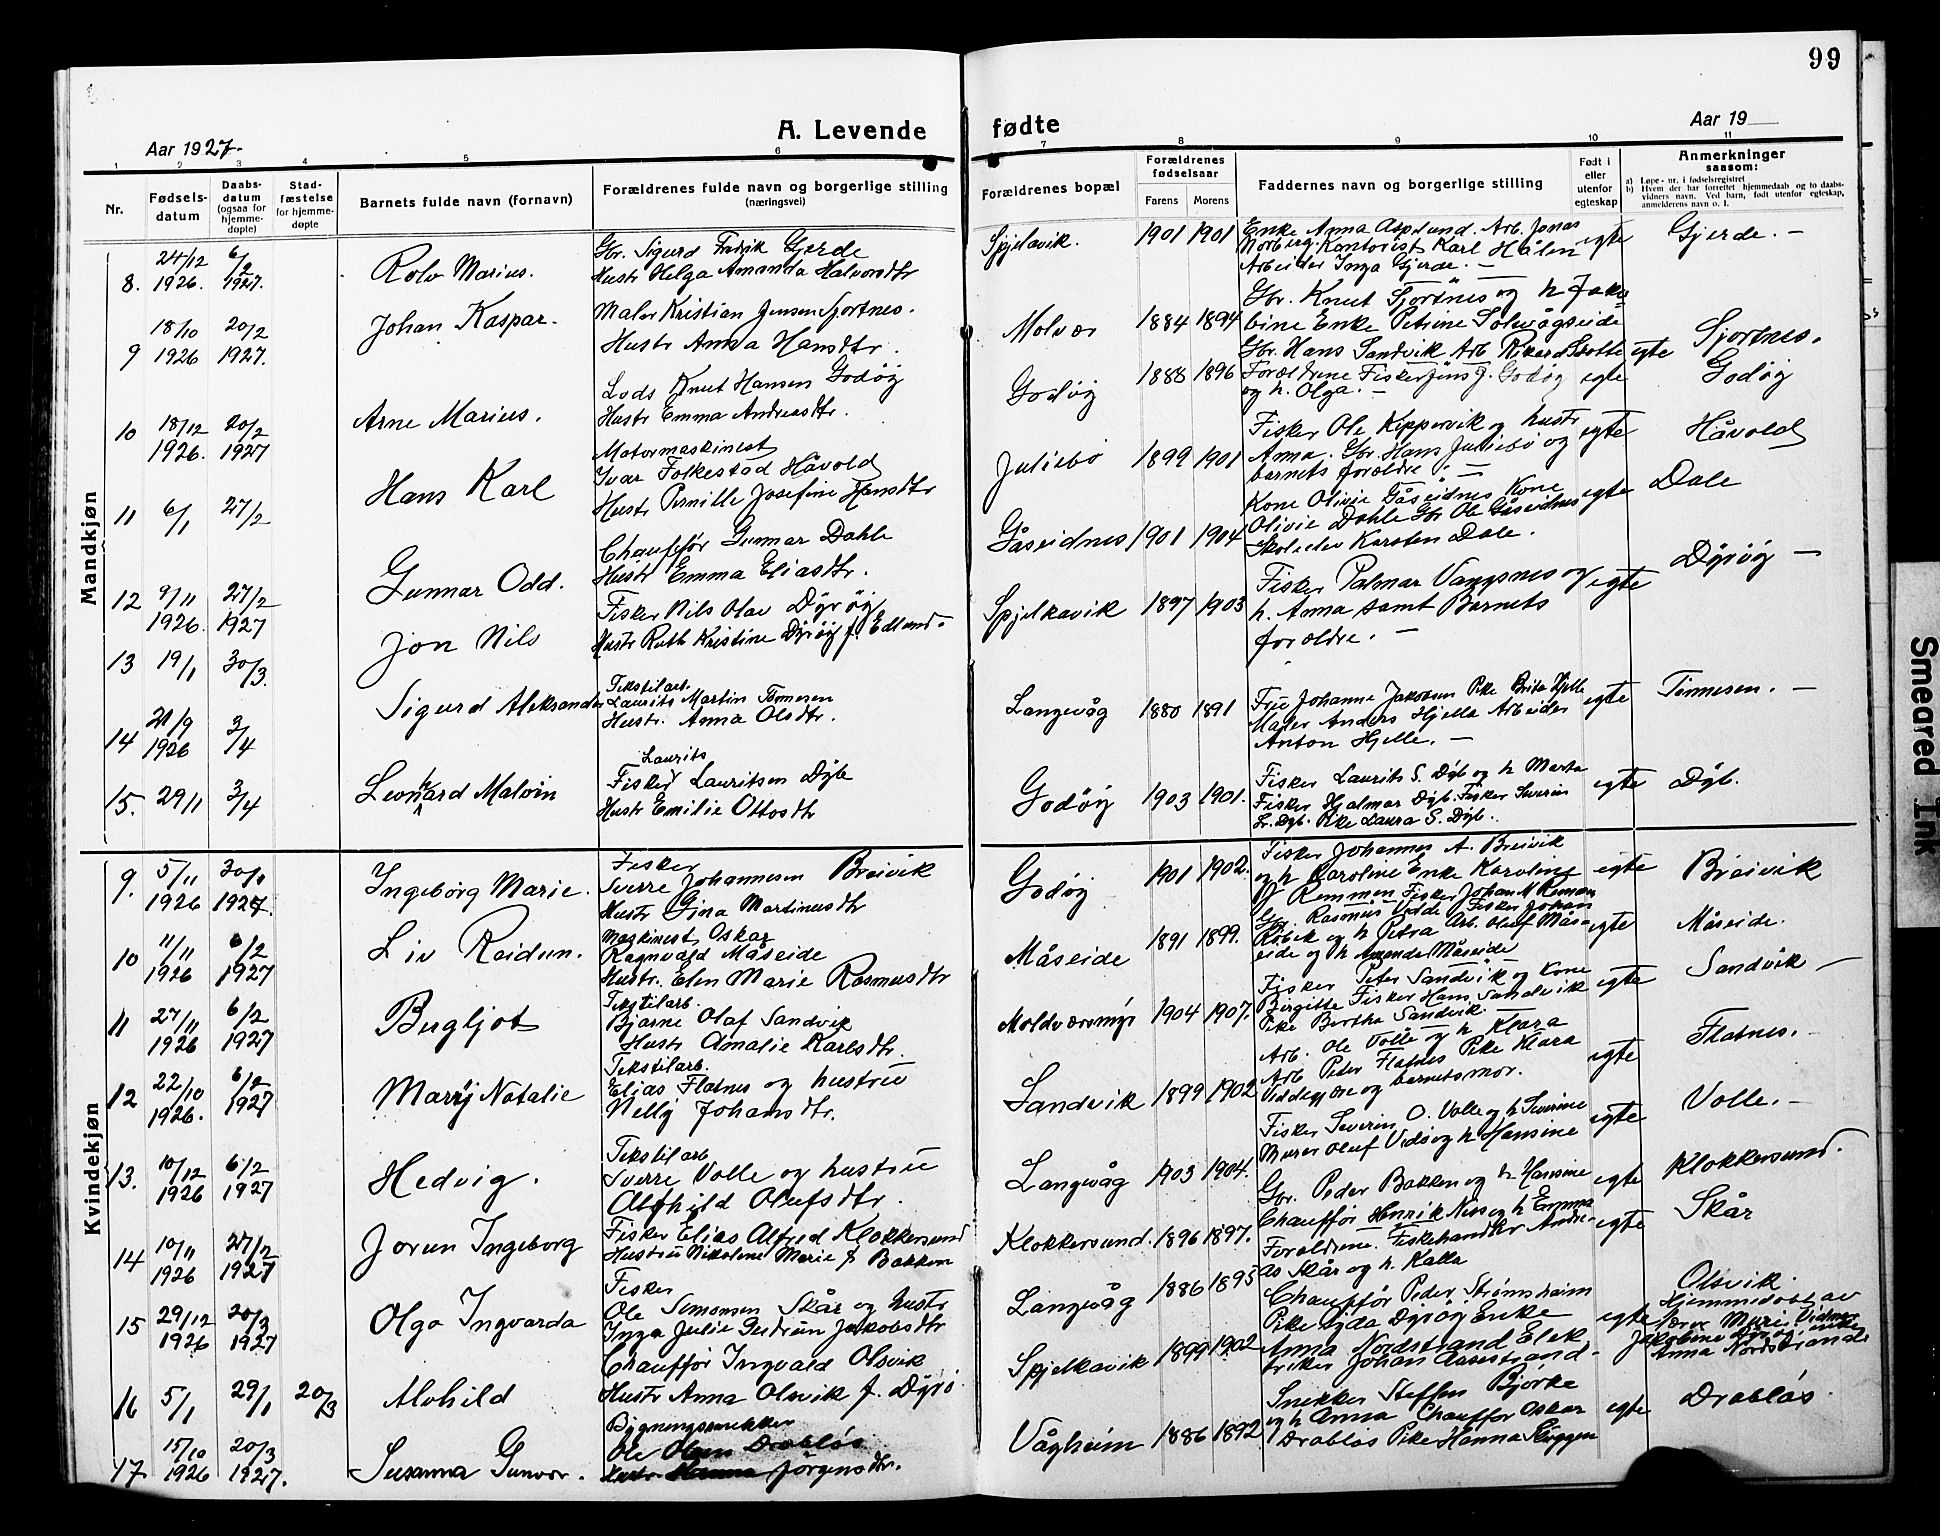 99
A. Levende fødte
Aar 1927.
Aar 19
1 2 3 4 5 6 7 8 9 10 11
Nr.
Fødsels-
datum
Daabs-
datum
(ogsaa for
hjemme-
døpte)
Stad-
fæstelse
for hjemme-
døpte
Barnets fulde navn (fornavn)
Forældrenes fulde navn og borgerlige stilling
(næringsvei)
Forældrenes bopæl
Forældrenes
fødselsaar
Farens Morens
Faddernes navn og borgerlige stilling
Født i
eller
utenfor
egteskap
Anmerkninger
saasom:
a) Løpe-nr. i fødselsregistret
b) Hvem der har forrettet hjemmedaab og to daabs-
vidners navn. Ved barn, født utenfor egteskap,
anmelderens navn o. l.
Mandkjøn
8. 24/12 1926. 6/2 1927. Rolv Marius.
Gbr. Sigurd Fredrik Gjerde
Hustr Helga Amanda Halvorsdtr
Spjelkavik. 1901 1901
Enke Anna Asplund. Arb. Jonas
Norberg. Kontorist Karl Hålen
Arbeider Inga Gjerde. —
egte Gjerde. —
9 18/10 1926 20/2 1927. Johan Kaspar.
Maler Kristian Jensen Sjortnes.
Hustr Anna Hansdtr.
Molvær 1884 1894
Gbr. Knut Sjortnes og h Jako-
bine Enke Petrine Solevågseide
Gbr. Hans Sandvik Arb Rikard Slotte
egte Sjortnes.
10 18/12 1926. 20/2 1927 Arne Marius.
Lods Knut Hansen Godøy
Hustr Emma Andreasdtr.
Godøy 1888 1896
Forældrene Fisker Jens J. Godøy
og h. Olga. —
egte Godøy
11 6/1 27/2 Hans Karl
Motormaskinest
Ivar Folkestad Håvold
Hustr Pernille Josefine Hansdtr
Juliebø 1899 1901
Fisker Ole Kippervik og hustr
Anna. Gbr. Hans Juliebø og
barnets foroldre. —
egte Håvold
12 9/11 1926. 27/2 1927 Gunnar Odd.
Chauffør Gunnar Dahle
Hustr Emma Eliasdtr.
Gåseidnes 1901 1904
Kone Olivie Gåseidnes Kone
Olivie Dahle Gbr Ole Gåseidnes
Skoleelev Karsten Dale.
egte Dale
13 19/1 30/3. Jon Nils
Fisker Nils Olav Dyrøy
Hustr Ruth Kristine Dyrøy f. Edlund.
Spjelkavik 1897 1903
Fisker Palmar Vangsnes og
h. Anna samt Barnets
foroldre. —
egte Dyrøy —
14 21/9 1926 3/4 Sigurd Aleksander
Tekstilarb.
Laurits Martin Tennesen
Hustr. Anna Olsdtr.
Langevåg 1880 1891
Frue Johanne Jakobsen Pike Brita Hjelle
Maler Anders Hjelle Arbeider
Anton Hjelle. —
egte Tennesen. —
15. 29/11 3/4 Leonhard Malvin
Laurits
Fisker Lauritsen Dyb
Hustr Emilie Ottosdtr
Godøy 1903 1901.
Fisker Laurits S. Dyb og h Marta
Fisker Hjalmar Dyb. Fisker Severin
Lr. Dyb. Pike Laura S. Dyb.
egte Dyb.
Kvindekjøn
9. 5/11 1926 30/1 1927. Ingeborg Marie.
Fisker
Sverre Johannesen Breivik
Hustr Gina Martinusdtr
Godøy 1901 1902.
Fisker Johannes A. Breivik
og h Caroline Enke Karoline
Remmen Fisker Johan M
egte Breivik
10 11/11 1926 6/2 1927 Liv Reidun.
Maskinest Oskar
Ragnvald Måseide
Hustr. Elen Marie Rasmusdtr
Måseide 1891 1899.
Gbr. Rasmus Vedde Fisker Johan
Røbek og h Petra Arb. Oluf Mås-
eide og h Amanda Måseide
egte Måseide.
11 27/11 1926 6/2 1927 Bergljot
Tekstilarb.
Bjarne Olaf Sandvik
Hustr Amalie Karlsdtr.
Moldværsmyr 1904 1907.
Fisker Peter Sandvik og Kone
Birgitte Fisker Hans Sandvik
Pike Bertha Sandvik.
egte Sandvik —
12 22/10 1926. 6/2 1927 Mary Natalie
Tekstilarb.
Elias Flatnes og hustru
Nelly Johansdtr.
Sandvik 1899 1902
Arb. Ole Volle og h Klara
Arb Peder Flatnes Pike Klara
Veddegjære og barnets mor.
egte Flatnes.
13. 10/12 1926 6/2 1927 Hedvig.
Tekstilarb
Sverre Volle og hustru
Alfhild Olufsdtr.
Langevåg 1903 1904.
Fisker Severin O. Volle og h Severine
Murer Oluf Vedø og h Hansine
egte Volle. —
14 10/11 1926 27/2 1927 Jorun Ingeborg
Fisker Elias Alfred Klokkersund
Hustru Nikoline Marie f Bakken
Klokkersund. 1896 1897.
Gbr. Peder Bakken og h Hansine
Chauffør Henrik Ness og h Emma
egte Klokkersund.
15 29/12 1926 20/3 1927 Olga Ingvarda
Fisker
Ole Simonsen Skår og hustr
Inga Julie Gudrun Jakobsdtr
Langevåg 1886 1895
Foroldrene. Fiskehandler Andre-
as Skår og h. Kalla
egte Skår
16 5/1 29/1 20/3 Alvhild
Chauffør Ingvald Olsvik
Hustr Anna Olsvik f. Dyrø
Spjelkavik 1899 1902
Chauffør Peder Strømsheim
Pike Gyda Dyrøy Enke
Anna Nordstrand Elek-
triker Johan Aasestrand
egte Olsvik.
Hjemmedøbt av
Marie Vidner
Jakobine Dyrøy enke
Anna Nordstrand
17 15/10 1926 20/3 1927. Susanna Gunvor.
Bygningssnekker
Ole Olsen Drabløs
Hustr Hanna Jørgensdtr.
Vågheim 1886 1892
Snekker Steffen Bjørke
og h Anna Chauffør Oskar
Drabløs Pike Hanna Skuggen
egte Drabløs
Smeared Ink